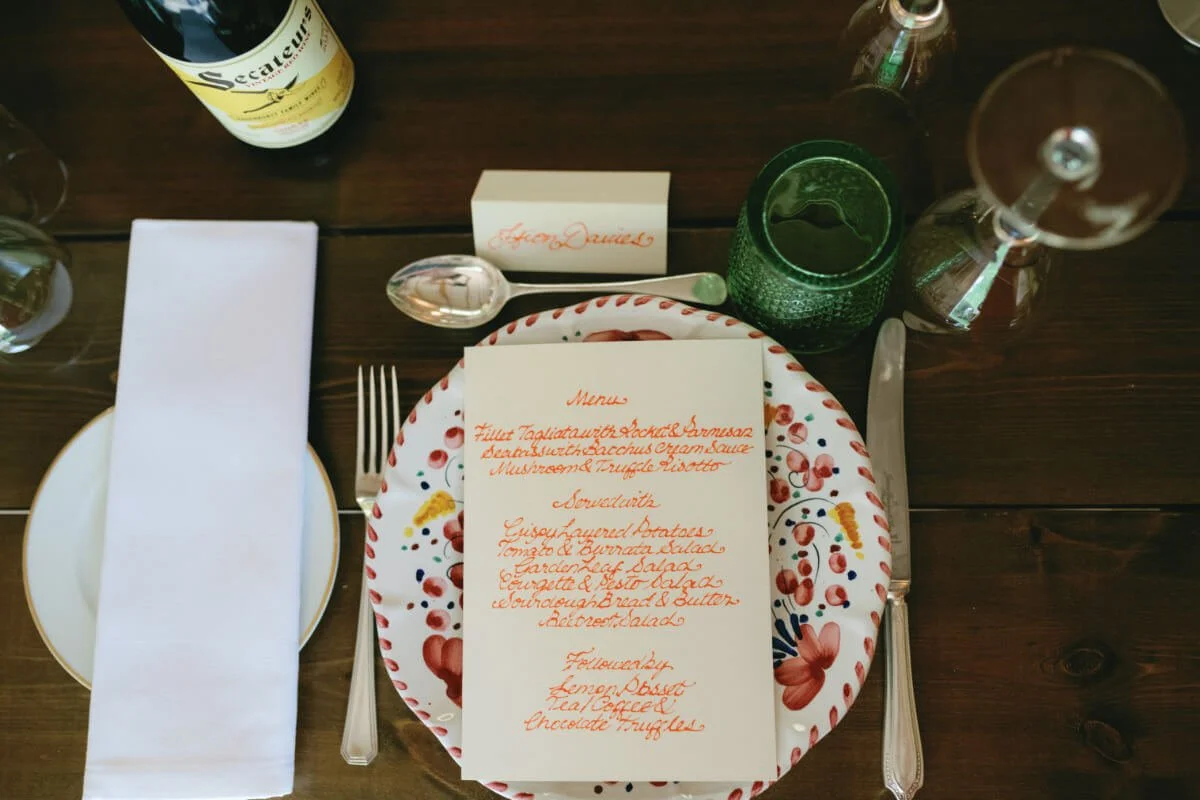 Secateurs
VINTAGE RED WINE
FAMILY WINES
Davies
Menu
Fillet Tagliata with Rocket & Parmesan
Seabass with Bacchus Cream Sauce
Mushroom & Truffle Risotto
Served with
Crispy Layered Potatoes
Tomato & Burrata Salad
Garden Leaf Salad
Courgette & Pesto Salad
Sourdough Bread & Butter
Beetroot Salad
Followed by
Lemon Posset
Tea/Coffee &
Chocolate Truffles